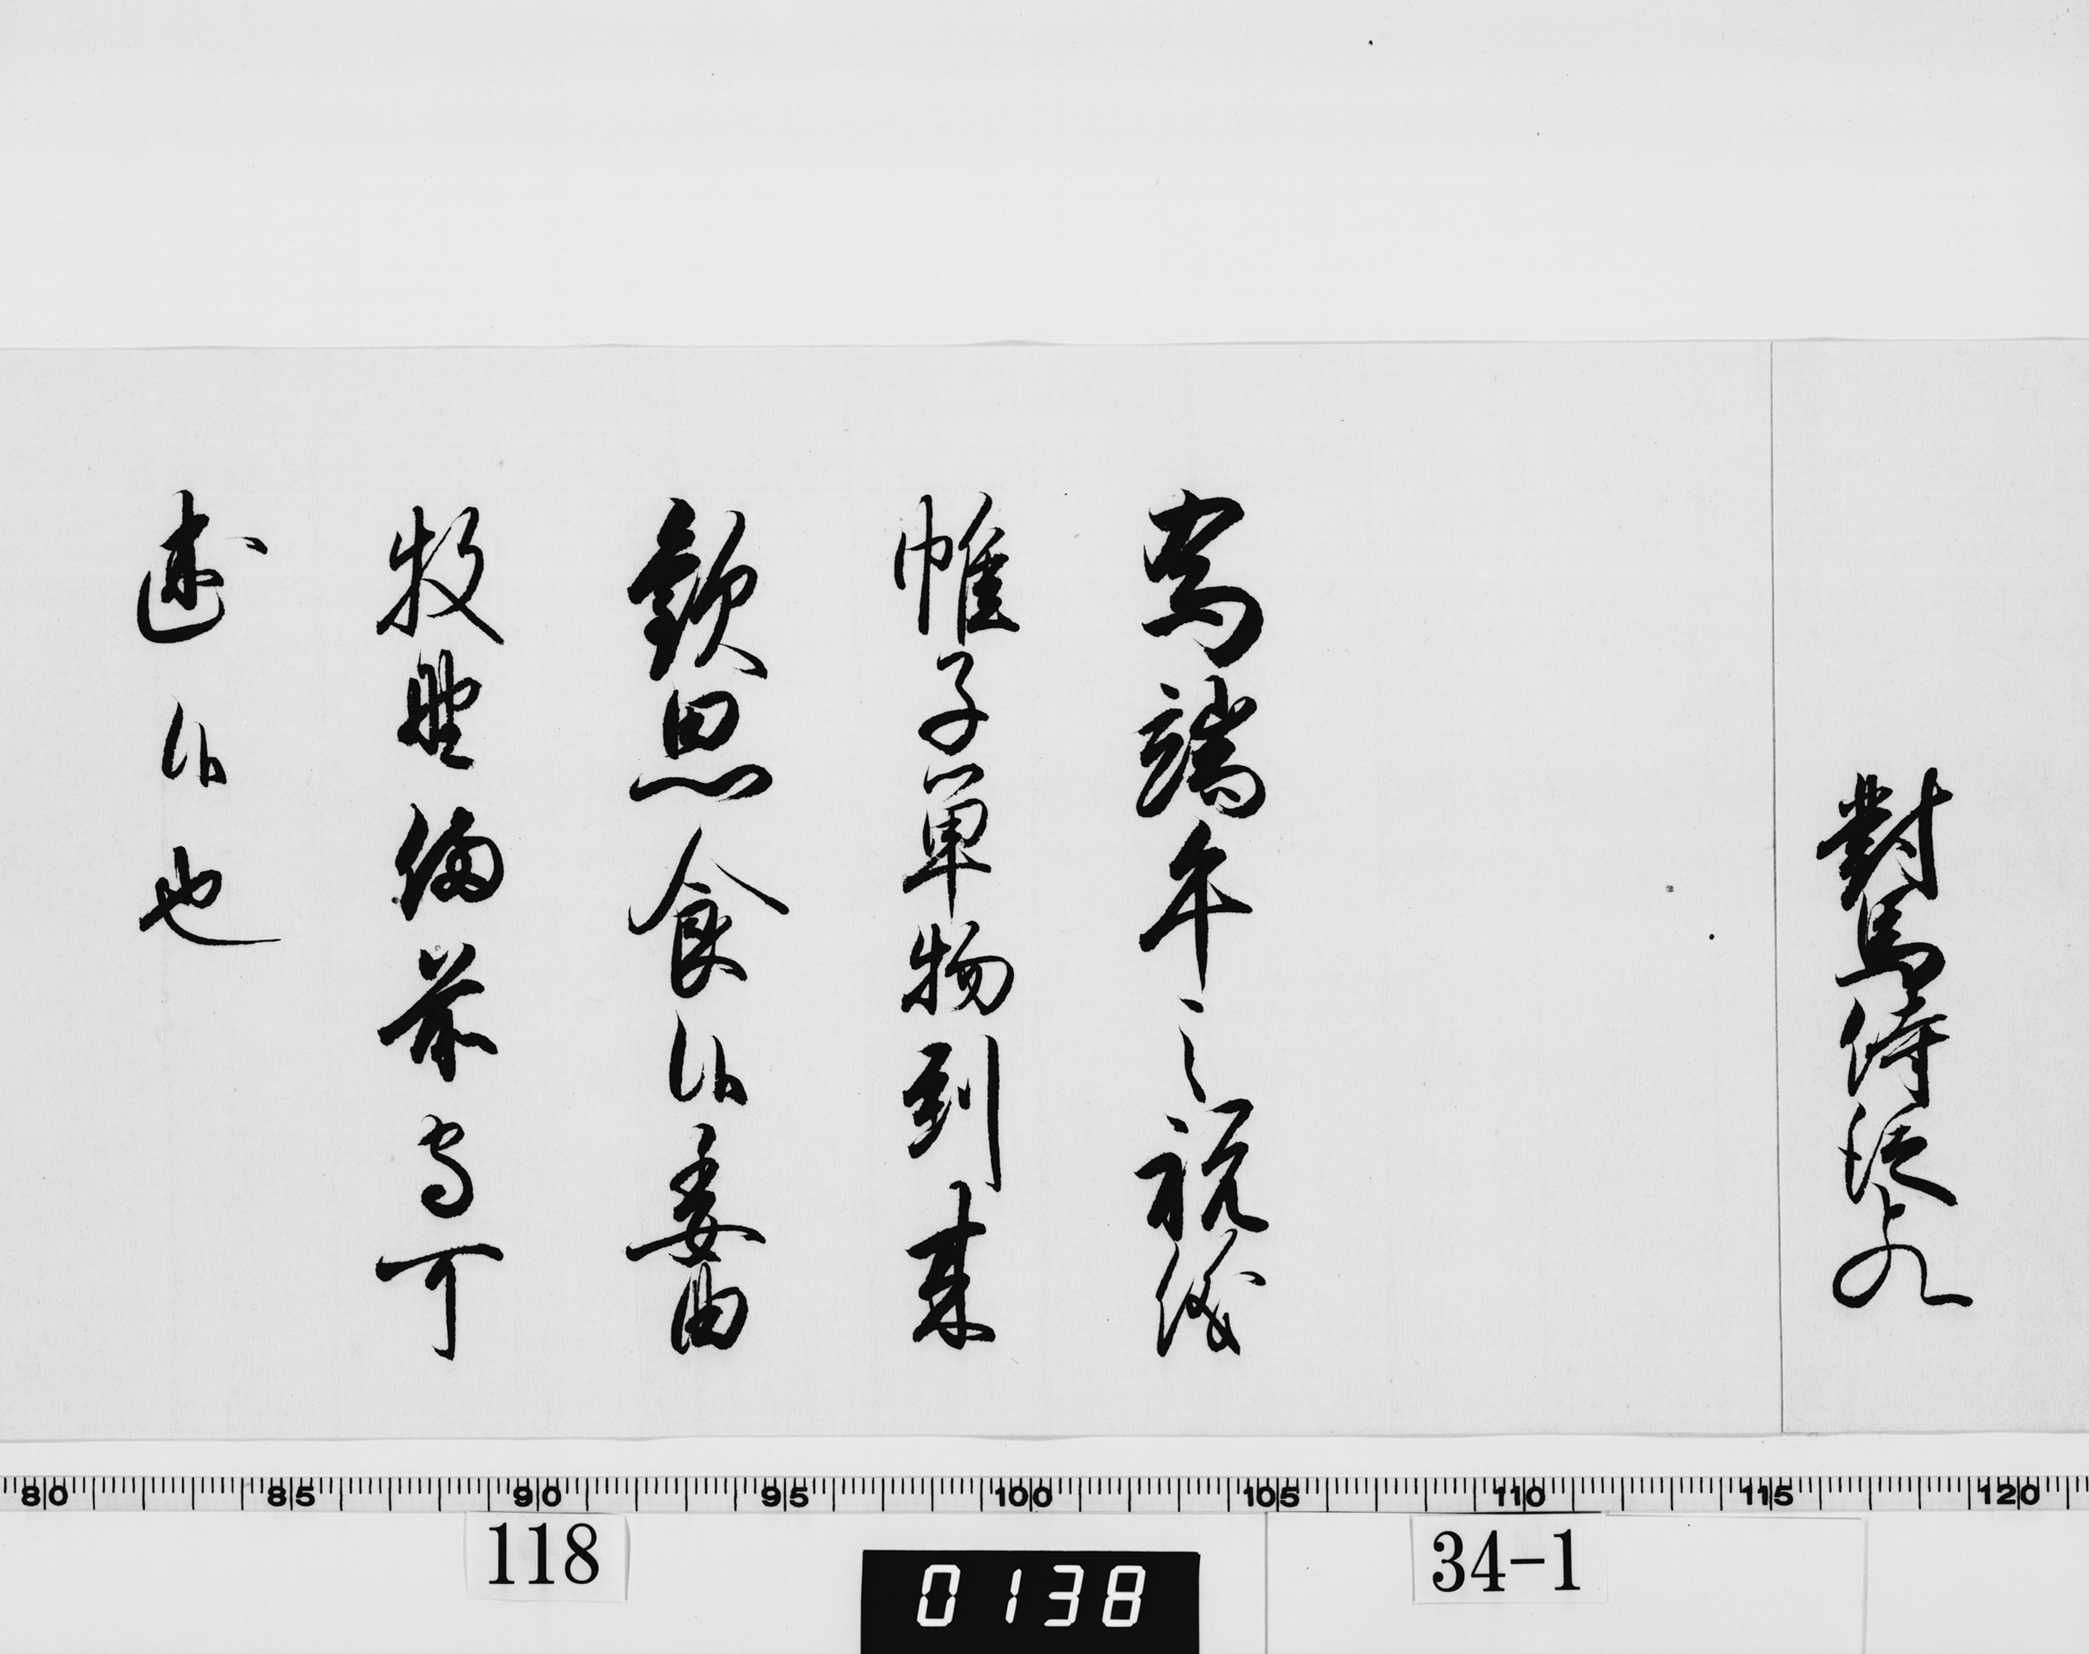 對馬侍従とのへ
為端午之祝儀
帷子単物到来
歓思食候委曲
牧野備前守可
述候也
80 85 90 95 100 105 110 115 120
118
0138
34-1